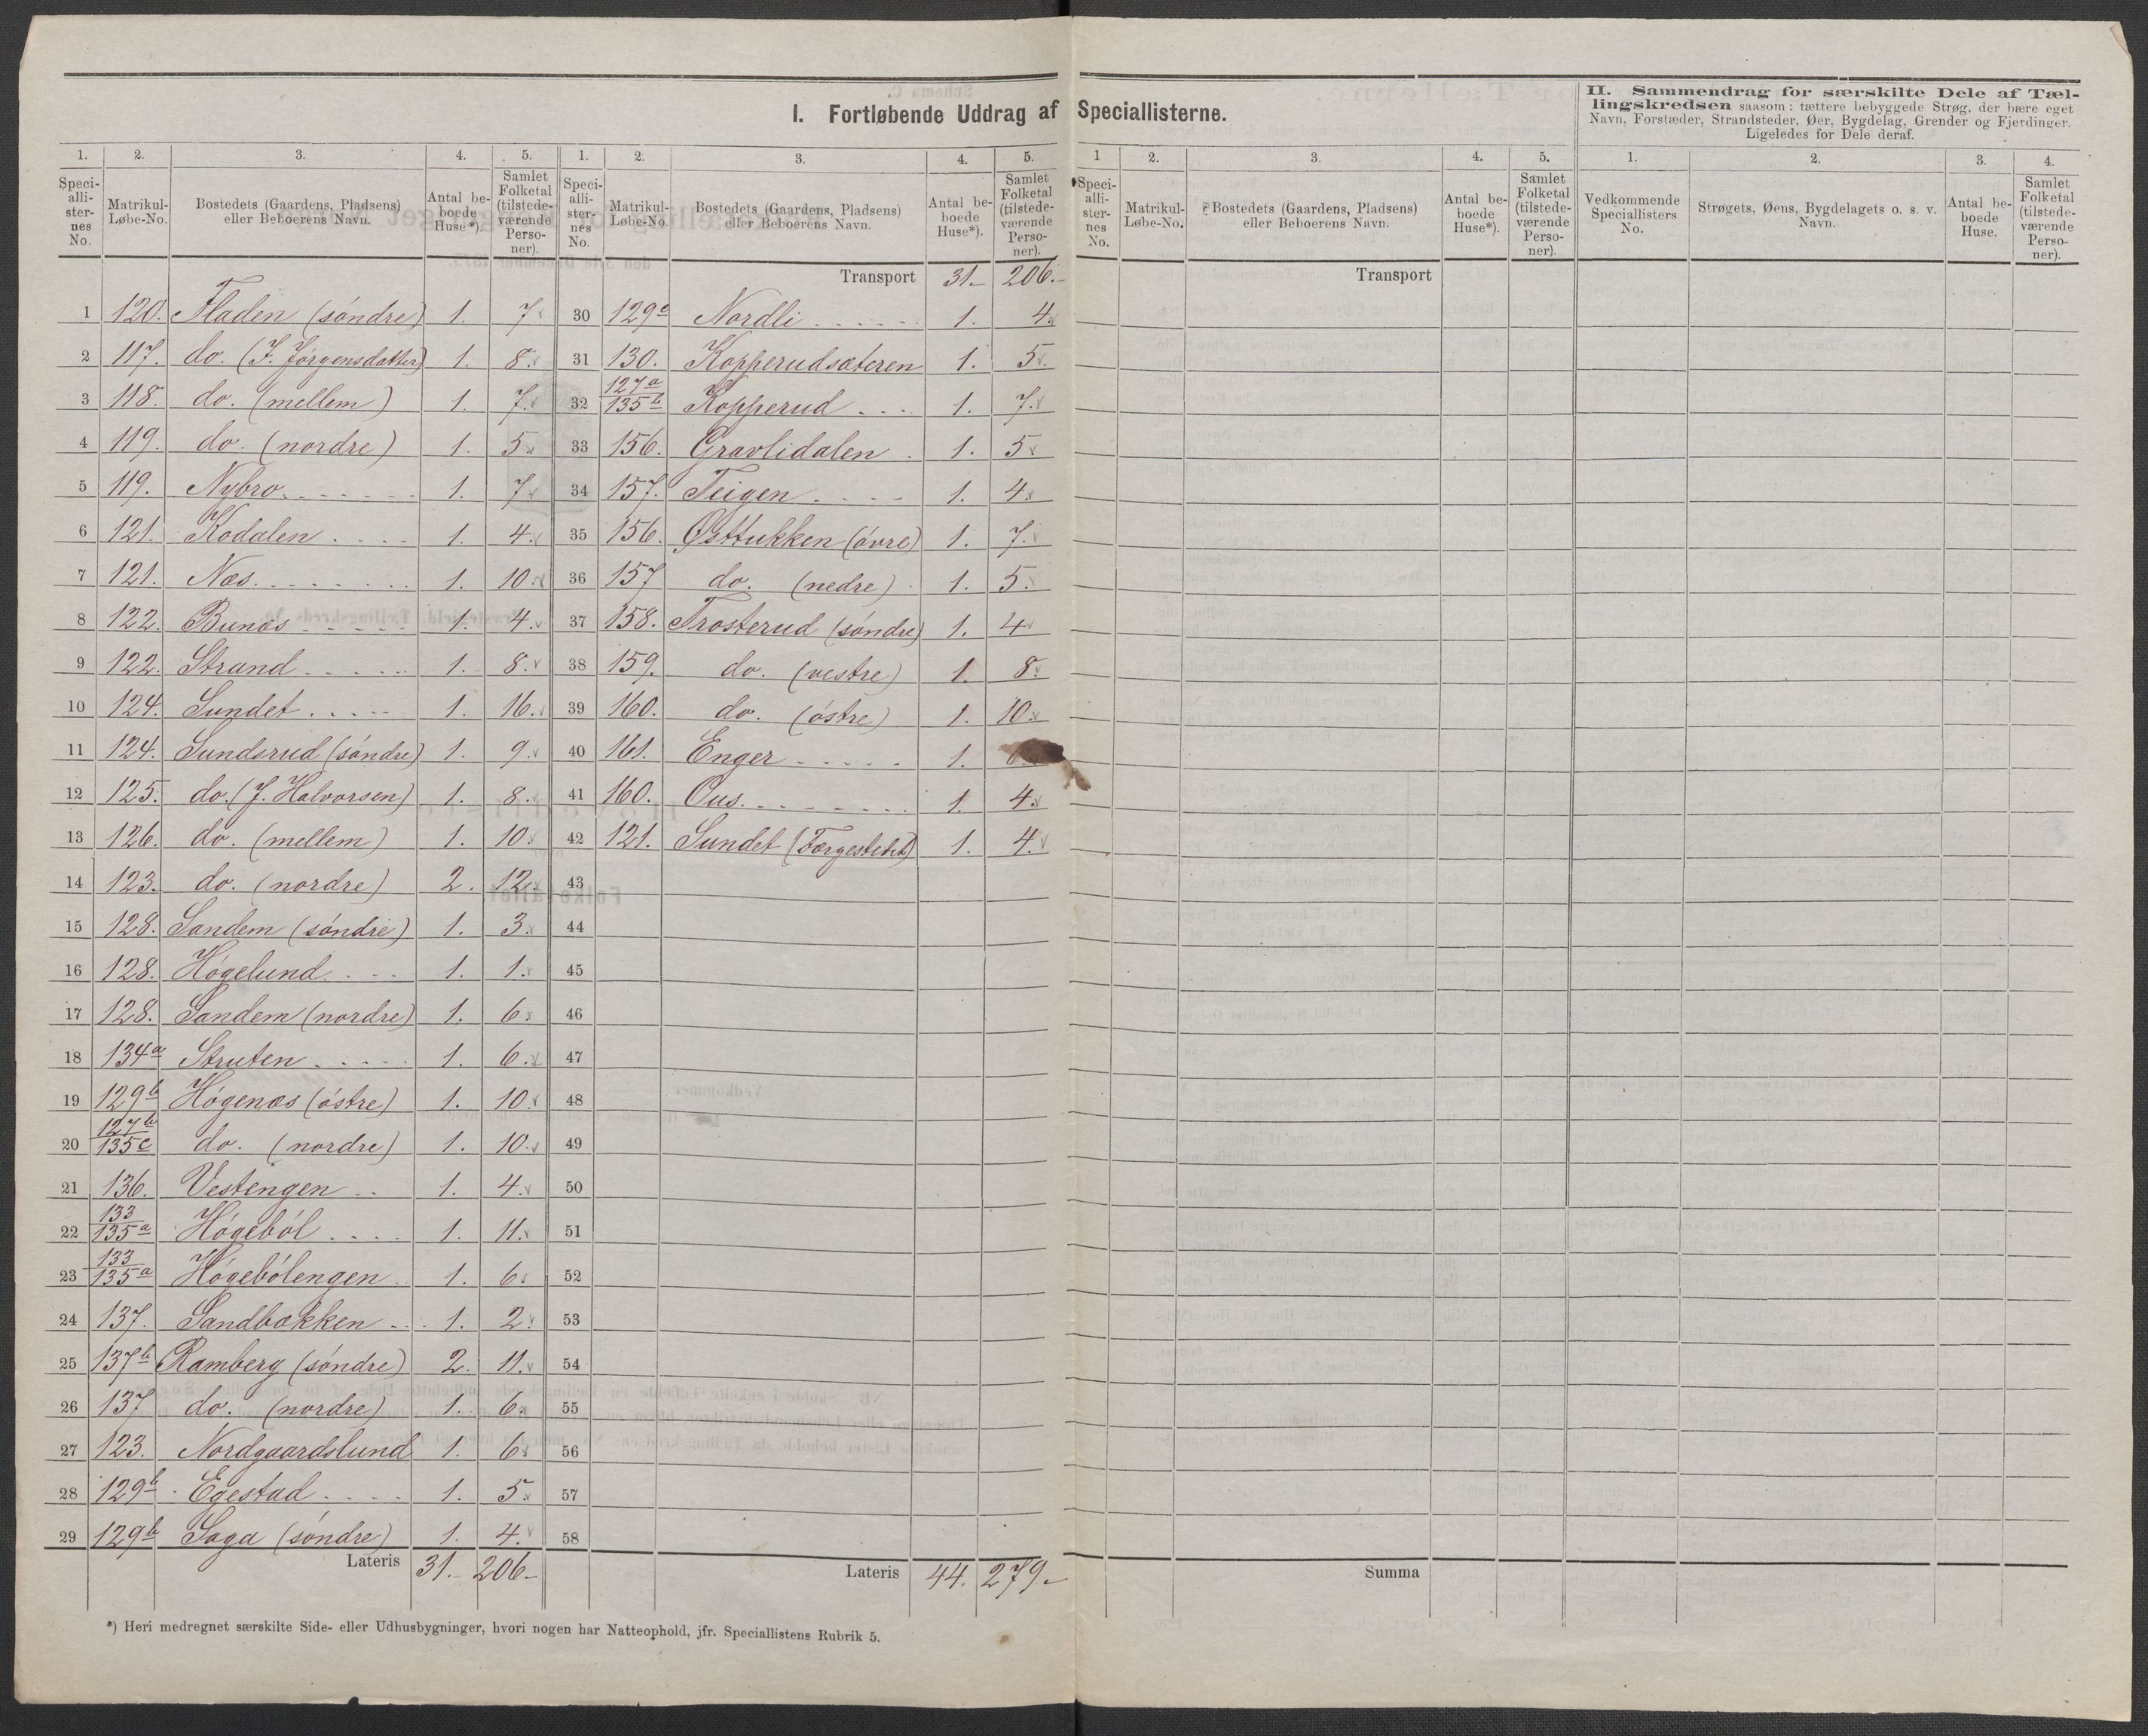 I. Fortløbende Uddrag af Speciallisterne.
II. Sammendrag for særskilte Dele af Tæl-
lingskredsen saasom: tættere bebyggede Strøg, der bære eget
Navn, Forstæder, Strandsteder, Øer, Bygdelag, Grender og Fjerdinger.
Ligeledes for Dele deraf.
1. 2. 3. 4. 5.
Speci-
alli-
ster-
nes
No.
Matrikul-
Løbe-No.
Bostedets (Gaardens, Pladsens)
eller Beboerens Navn.
Antal be-
boede
Huse*).
Samlet
Folketal
(tilstede-
værende
Perso-
ner).
1 120. Fladen (söndre) 1. 7
2 117. do. (J. Jörgensdatter) 1. 8.
3 118. do. (mellem) 1. 7.
4 119. do. (nordre) 1. 5.
5 119. Nybro 1. 7
6 121. Kodalen 1. 4.
7 121. Næs. 1. 10.
8 122. Bunæs 1. 4.
9 122. Strand 1. 8.
10 124. Sundet 1. 16.
11 124. Sundsrud (söndre) 1. 9.
12 125. do. (J. Halvorsen) 1. 8.
13 126. do. (mellem) 1. 10.
14 123. do. (nordre) 2. 12.
15 128. Sandem (söndre) 1. 3.
16 128. Högelund 1. 1.
17 128. Sandem (nordre) 1. 6.
18 134a Struten 1. 6.
19 129b Högenæs (östre) 1. 10.
20 127b/135c do. (nordre) 1. 10.
21 136. Vestengen 1. 4.
22 133/135a Högeböl 1. 11.
23 133/135a Högebölengen 1. 6.
24 137. Sandbækken 1. 2.
25 137b Ramberg (söndre) 2. 11.
26 137 do. (nordre) 1. 6.
27 123. Nordgaardslund 1. 6.
28 129b Egestad 1. 5.
29 129b Saga (söndre) 1. 4.
Lateris 31. 206
*) Heri medregnet særskilte Side- eller Udhusbygninger, hvori nogen har Natteophold, jfr. Speciallistens Rubrik 5.
1. 2. 3. 4. 5.
Speci-
alli-
ster-
nes
No.
Matrikul-
Løbe-No.
Bostedets (Gaardens, Pladsens)
eller Beboerens Navn.
Antal be-
boede
Huse*).
Samlet
Folketal
(tilstede-
værende
Perso-
ner).
Transport 31. 206.
30 129c Nordli 1. 4.
31 130. Kopperudsæteren 1. 5.
32 127a/135b Kopperud 1. 7.
33 156. Gravlidalen 1. 5
34 157. Teigen 1. 4.
35 156. Østtukken (övre) 1. 7.
36 157 do. (nedre) 1. 5.
37 158. Trosterud (söndre) 1. 4
38 159. do. (vestre) 1. 8.
39 160. do. (östre) 1. 10.
40 161. Enger 1.
41 160. Ous. 1. 4.
42 121. Sundet (Færgestedet) 1. 4.
43
44
45
46
47
48
49
50
51
52
53
54
55
56
57
58
Lateris 44. 279.
1 2. 3. 4. 5.
Speci-
alli-
ster-
nes
No.
Matrikul-
Løbe-No.
Bostedets (Gaardens, Pladsens)
eller Beboerens Navn.
Antal be-
boede
Huse*).
Samlet
Folketal
(tilstede-
værende
Perso-
ner).
Transport
Summa
1. 2. 3. 4.
Vedkommende
Speciallisters
No.
Strøgets, Øens, Bygdelagets o. s. v.
Navn.
Antal be-
boede
Huse.
Samlet
Folketal
(tilstede-
værende
Perso-
ner).